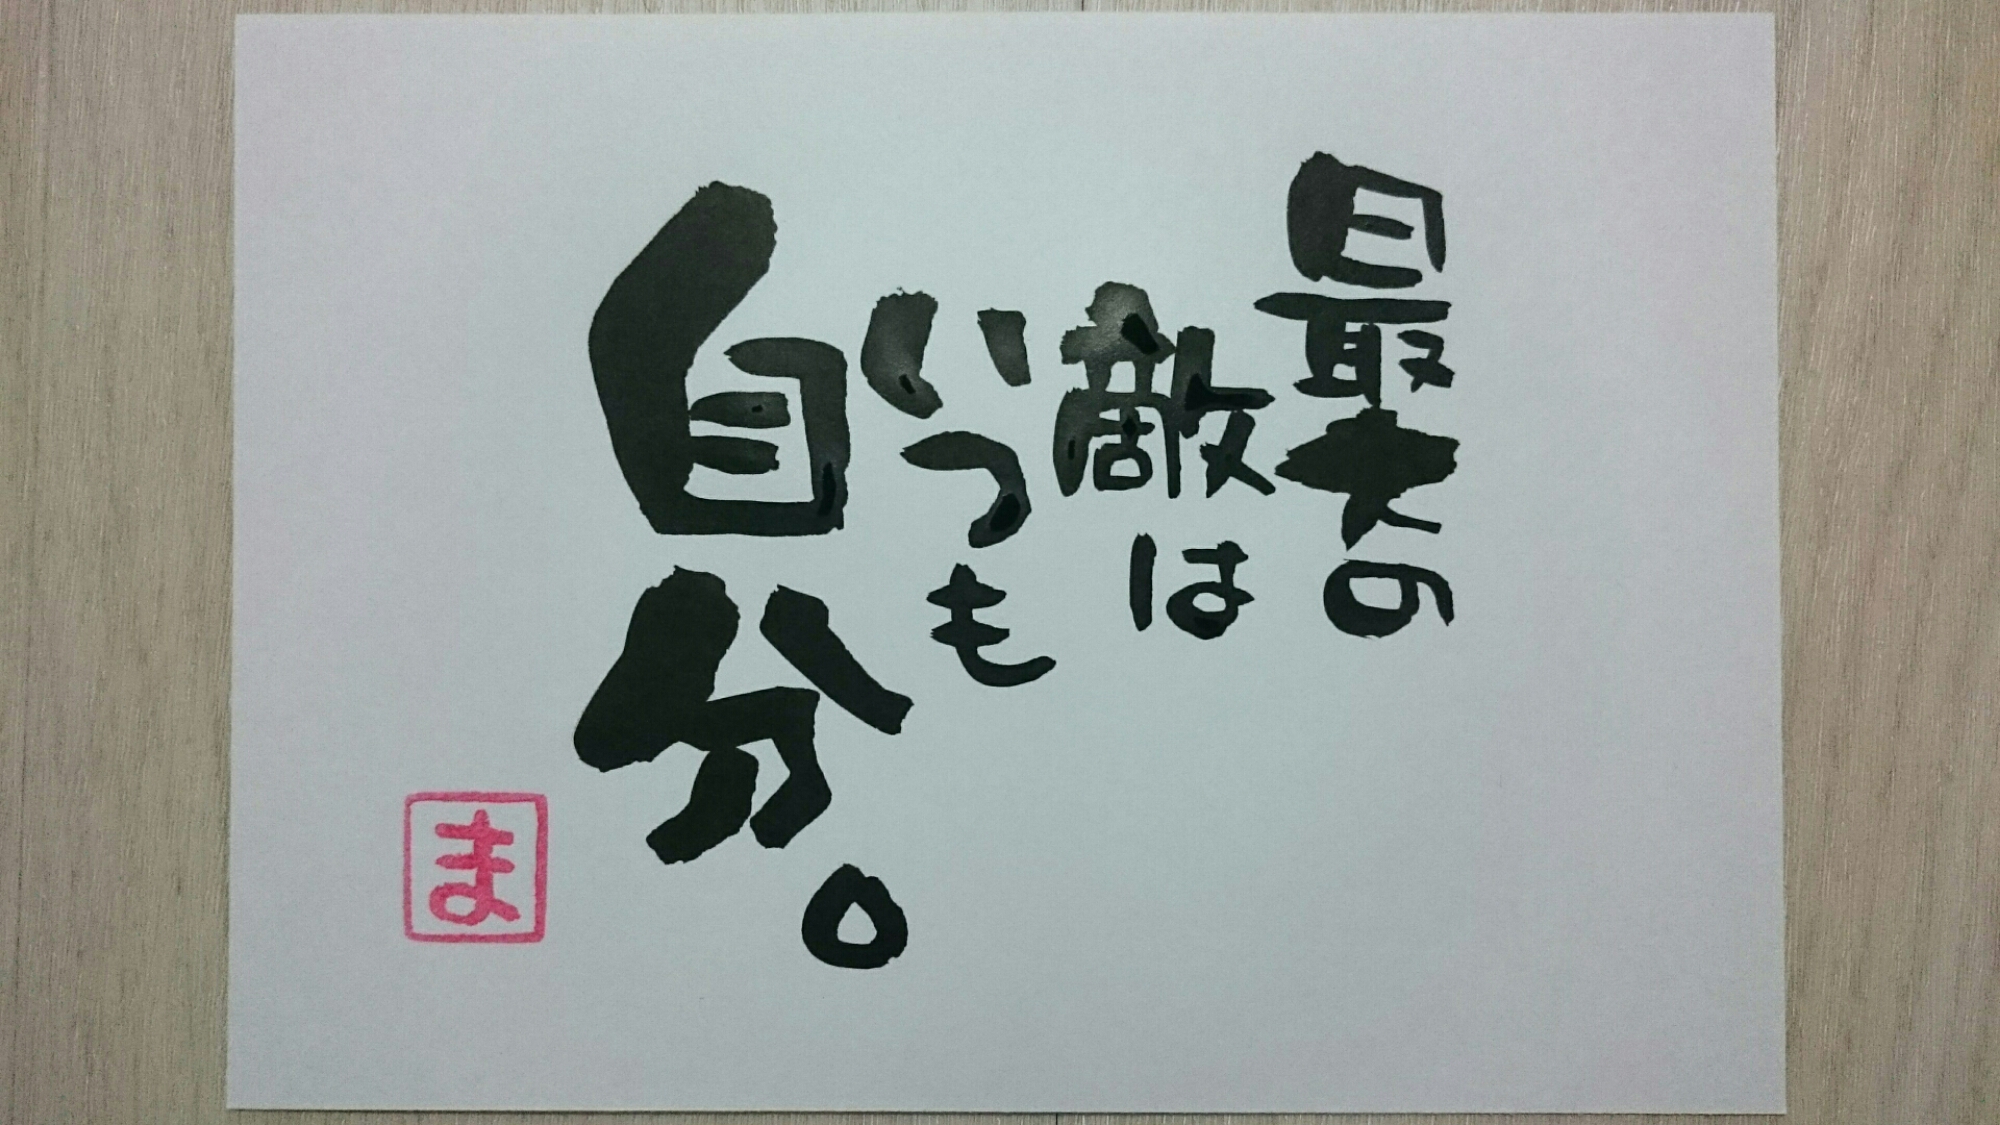 最大の
敵は
いつも
自分。
ま